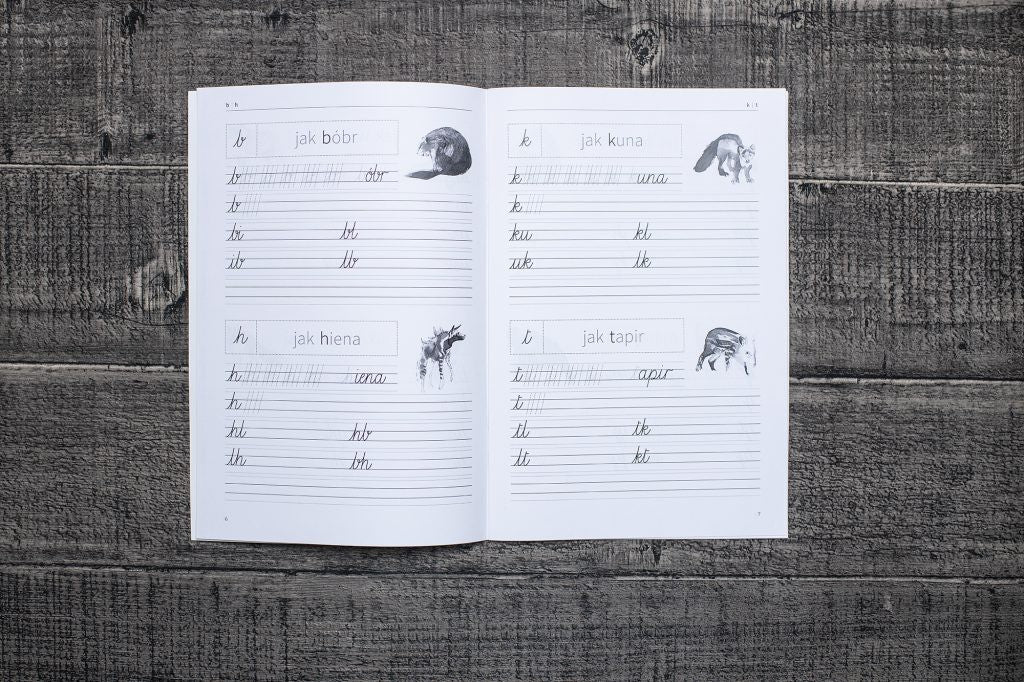 b | h
b jak bóbr
b óbr
b
bi bl
ib lb
h jak hiena
h iena
h
hl hb
lh bh
6
k | t
k jak kuna
k una
k
ku kl
uk lk
t jak tapir
t apir
t
tl tk
lt kt
7